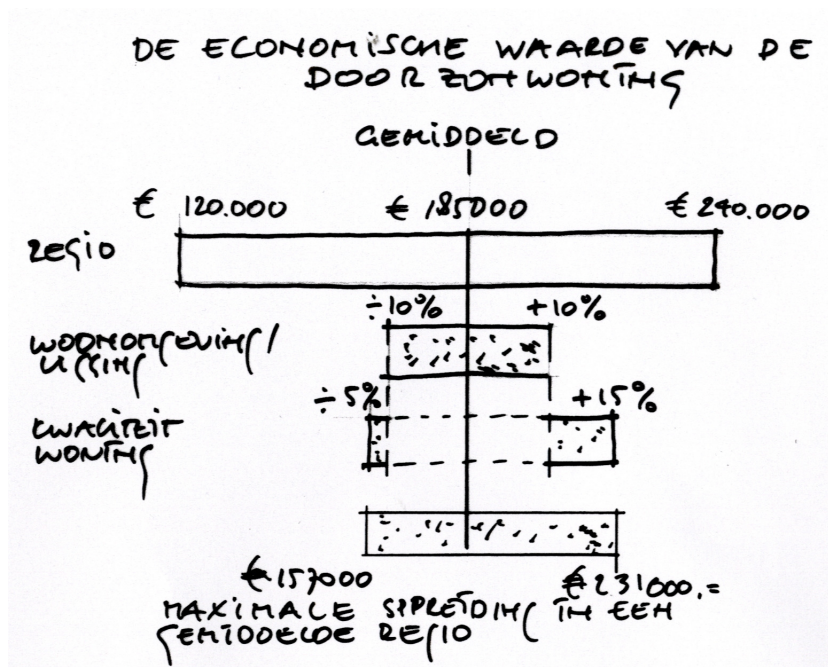 DE ECONOMISCHE WAARDE VAN DE
DOORZONWONING
GEMIDDELD
€ 120.000 € 185000 € 240.000
REGIO
÷10% +10%
WOONOMGEVING/
LIGGING
÷5% +15%
KWALITEIT
WONING
€ 157000 € 231000.=
MAXIMALE SPREIDING IN EEN
GEMIDDELDE REGIO